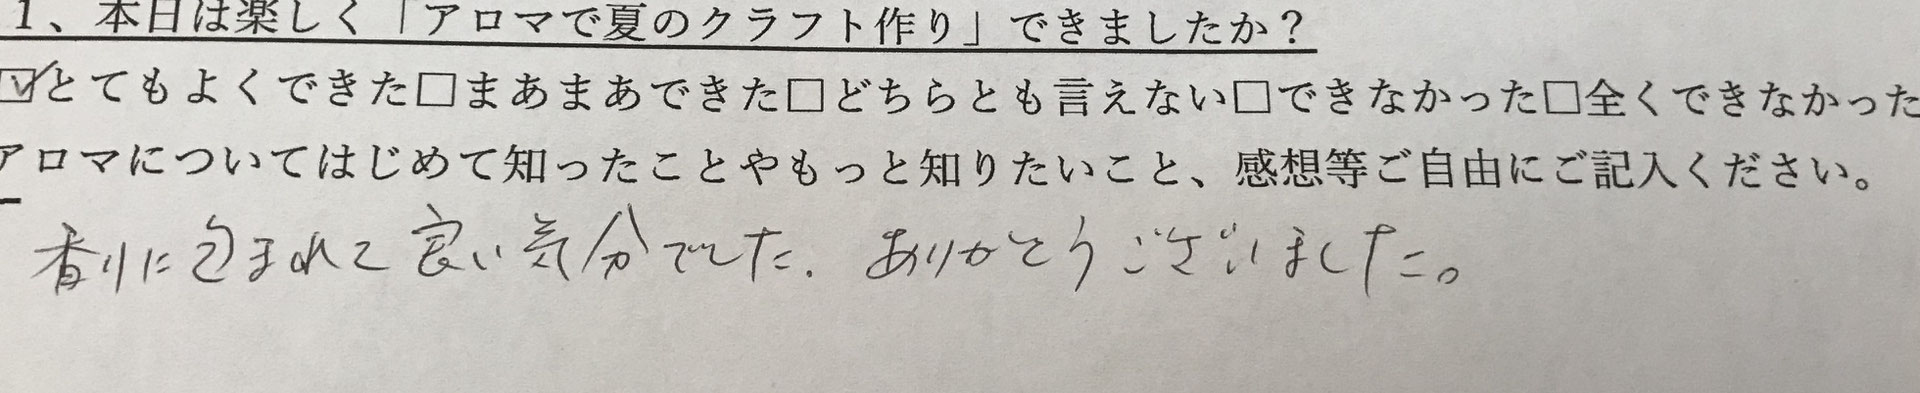 1、本日は楽しく「アロマで夏のクラフト作り」できましたか？
☑とてもよくできた□まあまあできた□どちらとも言えない□できなかった□全くできなかった
アロマについてはじめて知ったことやもっと知りたいこと、感想等ご自由にご記入ください。
香りに包まれて良い気分でした. ありがとうございました。